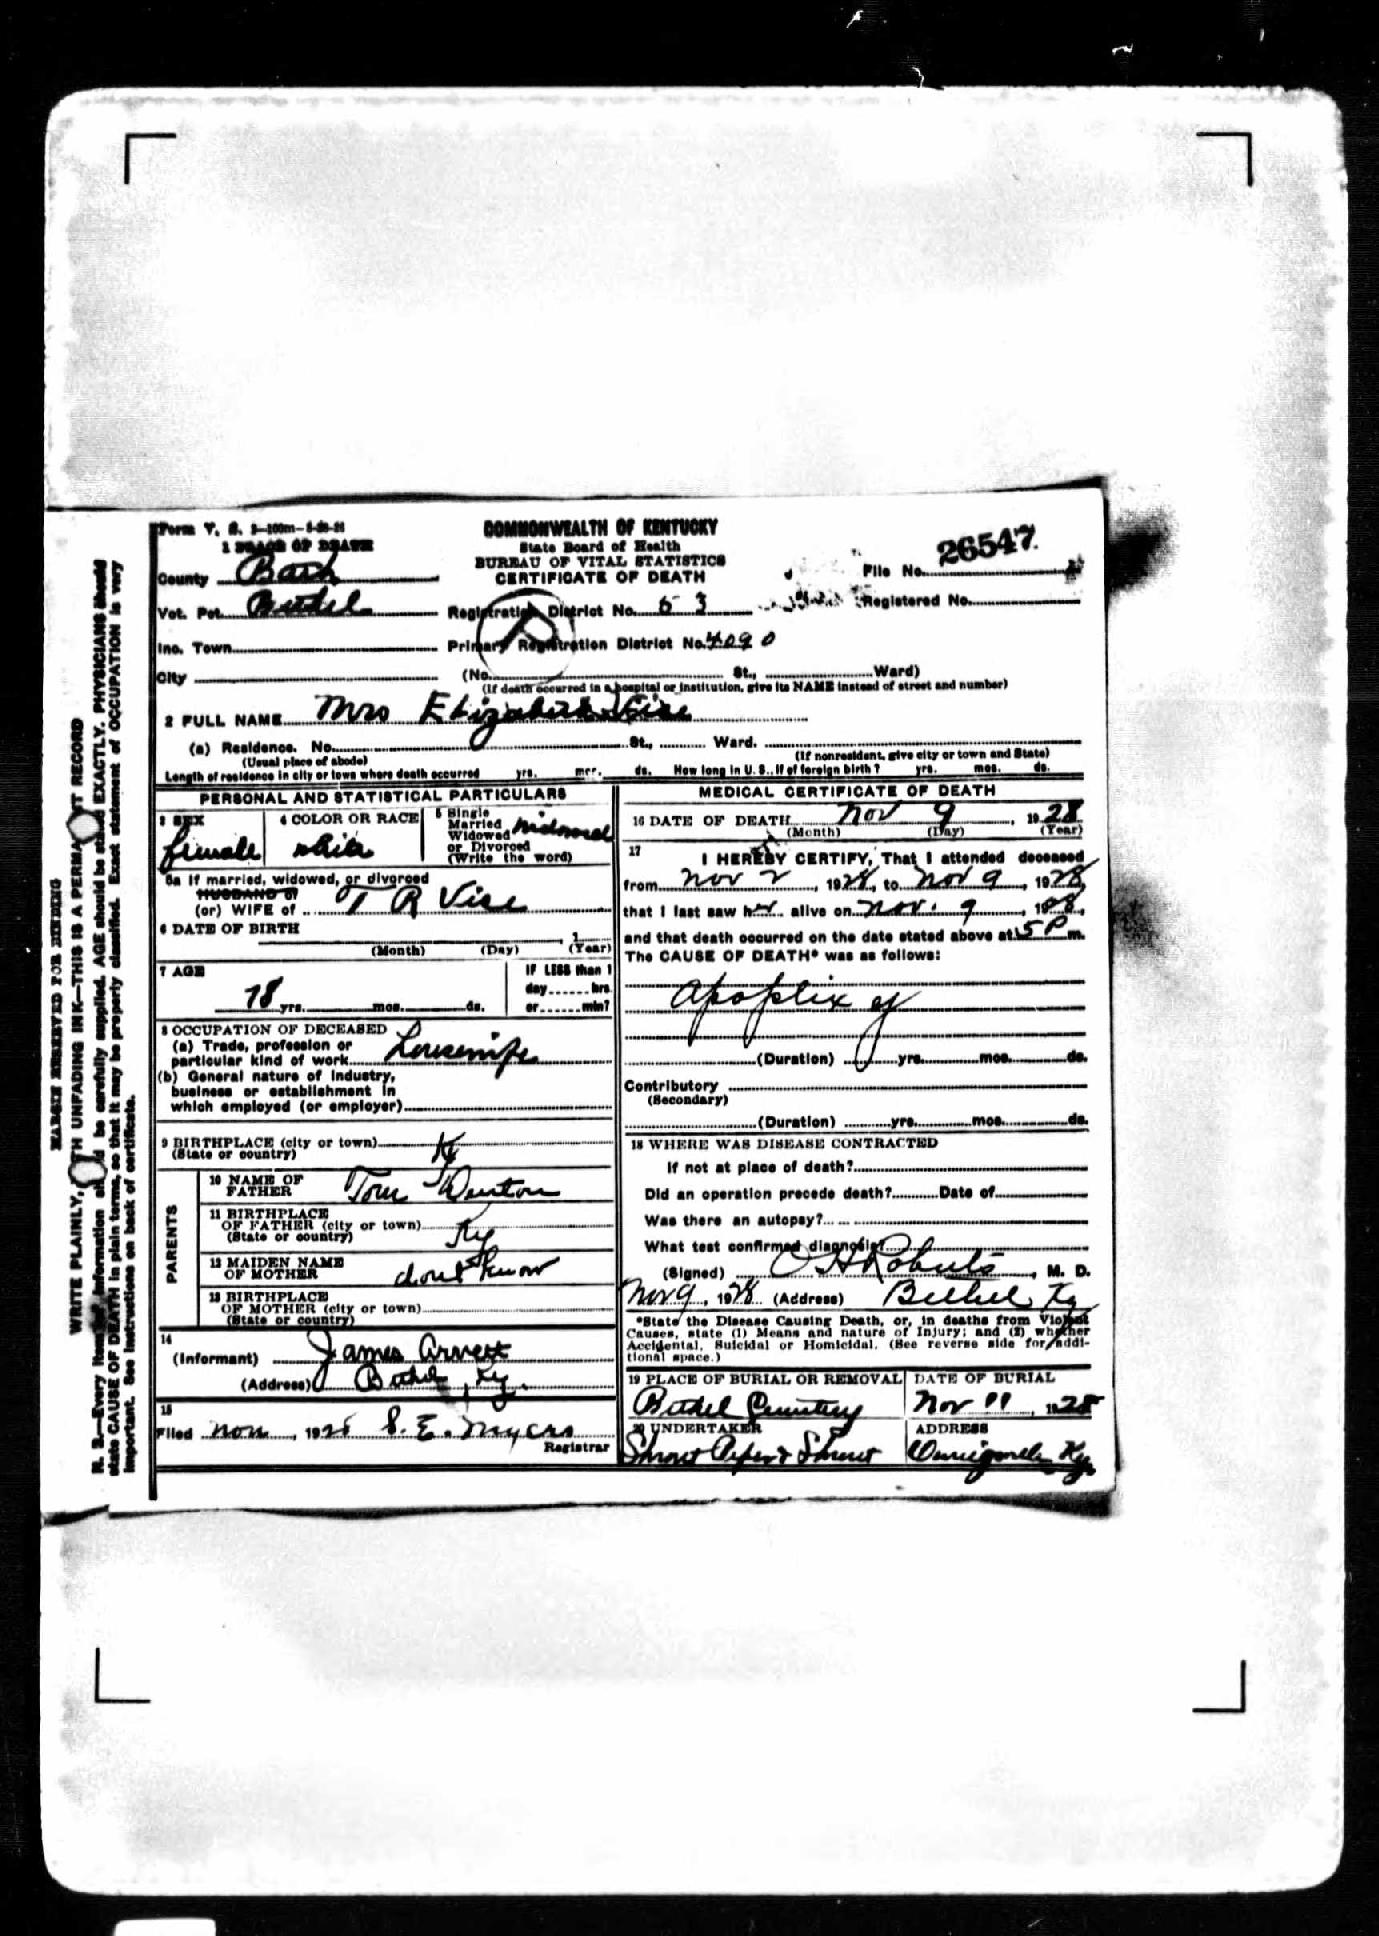 Form V. S. 1-100m-
1 PLACE OF DEATH
County Bath
Vot. Pct. Bethel
Inc. Town
City
COMMONWEALTH OF KENTUCKY
State Board of Health
BUREAU OF VITAL STATISTICS
CERTIFICATE OF DEATH
File No. 26547
Registration District No. 53 Registered No.
Primary Registration District No. 4090
(No. St., Ward)
(If death occurred in a hospital or institution, give its NAME instead of street and number)
2 FULL NAME Mrs Elizabeth Vise
(a) Residence. No. St., Ward.
(Usual place of abode) (If nonresident, give city or town and State)
Length of residence in city or town where death occurred yrs. mos. ds. How long in U. S., if of foreign birth? yrs. mos. ds.
PERSONAL AND STATISTICAL PARTICULARS
3 SEX
female
4 COLOR OR RACE
white
5 Single
Married
Widowed
or Divorced
(Write the word)
widowed
5a If married, widowed, or divorced
HUSBAND of
(or) WIFE of T R Vise
6 DATE OF BIRTH
1
(Month) (Day) (Year)
7 AGE
78 yrs. mos. ds.
IF LESS than 1
day hrs.
or min?
8 OCCUPATION OF DECEASED
(a) Trade, profession or
particular kind of work Housewife
(b) General nature of industry,
business or establishment in
which employed (or employer)
9 BIRTHPLACE (city or town)
(State or country) Ky
PARENTS
10 NAME OF
FATHER Tom Denton
11 BIRTHPLACE
OF FATHER (city or town)
(State or country) Ky
12 MAIDEN NAME
OF MOTHER dont know
13 BIRTHPLACE
OF MOTHER (city or town)
(State or country)
14
(Informant) James Arnett
(Address) Bethel, Ky.
15
Filed nov , 1928 S. E. Myers
Registrar
MEDICAL CERTIFICATE OF DEATH
16 DATE OF DEATH nov 9 , 1928
(Month) (Day) (Year)
17
I HEREBY CERTIFY, That I attended deceased
from nov 2 , 1928, to nov 9 , 1928,
that I last saw her alive on nov. 9 , 1928,
and that death occurred on the date stated above at 5 P m.
The CAUSE OF DEATH* was as follows:
Apoplixey
(Duration) yrs. mos. ds.
Contributory
(Secondary)
(Duration) yrs. mos. ds.
18 WHERE WAS DISEASE CONTRACTED
If not at place of death?
Did an operation precede death? Date of
Was there an autopsy?
What test confirmed diagnosis?
(Signed) O H Roberts , M. D.
Nov 9, 1928 (Address) Bethel Ky
*State the Disease Causing Death, or, in deaths from Violent
Causes, state (1) Means and nature of Injury; and (2) whether
Accidental, Suicidal or Homicidal. (See reverse side for addi-
tional space.)
19 PLACE OF BURIAL OR REMOVAL
Bethel Cemetery
DATE OF BURIAL
Nov 11 , 1928
20 UNDERTAKER
Shrout Piper & Shrout
ADDRESS
Owingsville Ky.
MARGIN RESERVED FOR BINDING
WRITE PLAINLY, WITH UNFADING INK—THIS IS A PERMANENT RECORD
N. B.—Every item of information should be carefully supplied. AGE should be stated EXACTLY. PHYSICIANS should
state CAUSE OF DEATH in plain terms, so that it may be properly classified. Exact statement of OCCUPATION is very
important. See instructions on back of certificate.